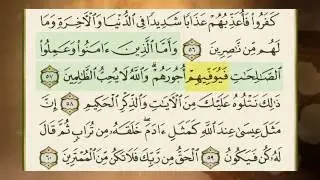 كَفَرُوا۟ فَأُعَذِّبُهُمْ عَذَابًا شَدِيدًا فِى ٱلدُّنْيَا وَٱلْءَاخِرَةِ وَمَا
لَهُم مِّن نَّـٰصِرِينَ ٥٦ وَأَمَّا ٱلَّذِينَ ءَامَنُوا۟ وَعَمِلُوا۟
ٱلصَّـٰلِحَـٰتِ فَيُوَفِّيهِمْ أُجُورَهُمْ وَٱللَّهُ لَا يُحِبُّ ٱلظَّـٰلِمِينَ ٥٧
ذَٰلِكَ نَتْلُوهُ عَلَيْكَ مِنَ ٱلْءَايَـٰتِ وَٱلذِّكْرِ ٱلْحَكِيمِ ٥٨ إِنَّ
مَثَلَ عِيسَىٰ عِندَ ٱللَّهِ كَمَثَلِ ءَادَمَ خَلَقَهُۥ مِن تُرَابٍ ثُمَّ قَالَ
لَهُۥ كُن فَيَكُونُ ٥٩ ٱلْحَقُّ مِن رَّبِّكَ فَلَا تَكُن مِّنَ ٱلْمُمْتَرِينَ ٦٠